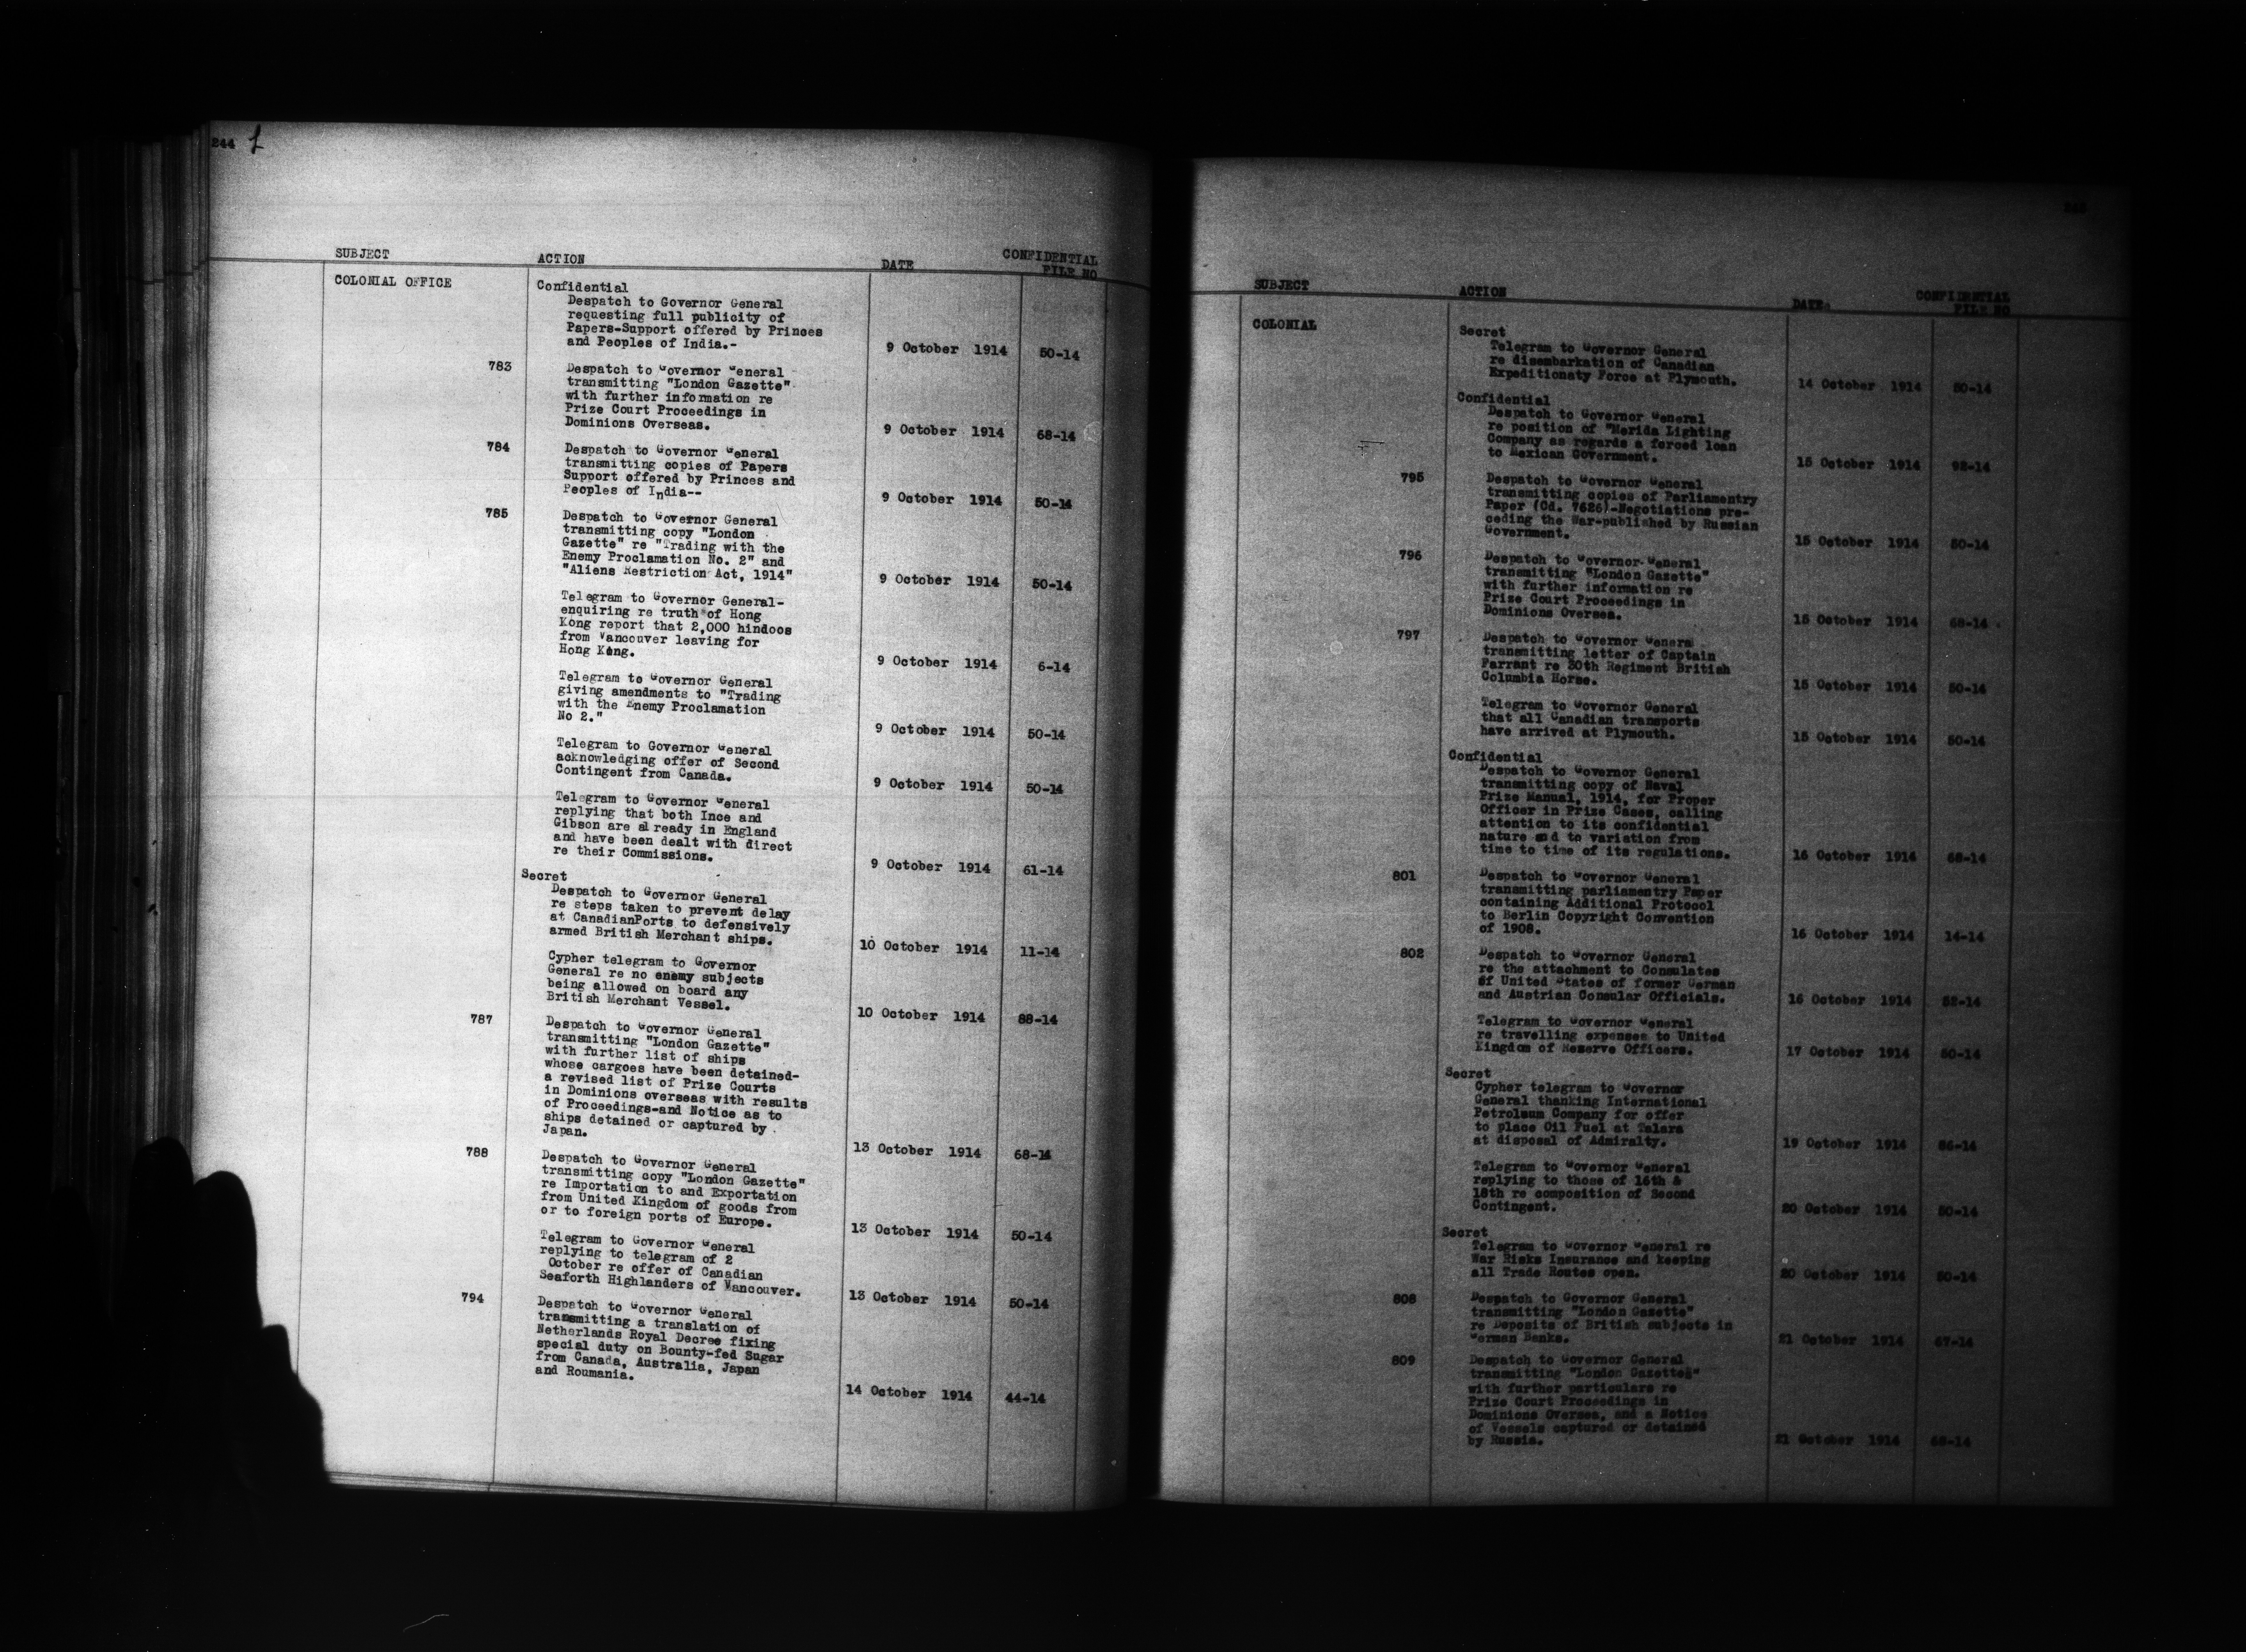 244
SUBJECT ACTION DATE CONFIDENTIAL
FILE NO
COLONIAL OFFICE Confidential
Despatch to Governor General
requesting full publicity of
Papers-Support offered by Princes
and Peoples of India.- 9 October 1914 50-14
783 Despatch to Governor General
transmitting "London Gazette"
with further information re
Prize Court Proceedings in
Dominions Overseas. 9 October 1914 68-14
784 Despatch to Governor General
transmitting copies of Papers
Support offered by Princes and
Peoples of India-- 9 October 1914 50-14
785 Despatch to Governor General
transmitting copy "London
Gazette" re "Trading with the
Enemy Proclamation No. 2" and
"Aliens Restriction Act, 1914" 9 October 1914 50-14
Telegram to Governor General-
enquiring re truth of Hong
Kong report that 2,000 hindoos
from Vancouver leaving for
Hong Kong. 9 October 1914 6-14
Telegram to Governor General
giving amendments to "Trading
with the Enemy Proclamation
No 2." 9 October 1914 50-14
Telegram to Governor General
acknowledging offer of Second
Contingent from Canada. 9 October 1914 50-14
Telegram to Governor General
replying that both Ince and
Gibson are already in England
and have been dealt with direct
re their Commissions. 9 October 1914 61-14
Secret
Despatch to Governor General
re steps taken to prevent delay
at CanadianPorts to defensively
armed British Merchant ships. 10 October 1914 11-14
Cypher telegram to Governor
General re no enemy subjects
being allowed on board any
British Merchant Vessel. 10 October 1914 88-14
787 Despatch to Governor General
transmitting "London Gazette"
with further list of ships
whose cargoes have been detained-
a revised list of Prize Courts
in Dominions overseas with results
of Proceedings-and Notice as to
ships detained or captured by
Japan. 13 October 1914 68-14
788 Despatch to Governor General
transmitting copy "London Gazette"
re Importation to and Exportation
from United Kingdom of goods from
or to foreign ports of Europe. 13 October 1914 50-14
Telegram to Governor General
replying to telegram of 2
October re offer of Canadian
Seaforth Highlanders of Vancouver. 13 October 1914 50-14
794 Despatch to Governor General
transmitting a translation of
Netherlands Royal Decree fixing
special duty on Bounty-fed Sugar
from Canada, Australia, Japan
and Roumania. 14 October 1914 44-14
SUBJECT ACTION DATE CONFIDENTIAL
FILE NO
COLONIAL Secret
Telegram to Governor General
re disembarkation of Canadian
Expeditionaty Force at Plymouth. 14 October 1914 50-14
Confidential
Despatch to Governor General
re position of "Merida Lighting
Company as regards a forced loan
to Mexican Government. 15 October 1914 92-14
795 Despatch to Governor General
transmitting copies of Parliamentry
Paper (Cd. 7626)-Negotiations pre-
ceding the War-published by Russian
Government. 15 October 1914 50-14
796 Despatch to Governor-General
transmitting "London Gazette"
with further information re
Prize Court Proceedings in
Dominions Oversea. 15 October 1914 68-14
797 Despatch to Governor Genera
transmitting letter of Captain
Farrant re 30th Regiment British
Columbia Horse. 15 October 1914 50-14
Telegram to Governor General
that all Canadian transports
have arrived at Plymouth. 15 October 1914 50-14
Confidential
Despatch to Governor General
transmitting copy of Naval
Prize Manual, 1914, for Proper
Officer in Prize Cases, calling
attention to its confidential
nature and to variation from
time to time of its regulations. 16 October 1914 68-14
801 Despatch to Governor General
transmitting parliamentry Paper
containing Additional Protocol
to Berlin Copyright Convention
of 1908. 16 October 1914 14-14
802 Despatch to Governor General
re the attachment to Consulates
of United States of former German
and Austrian Consular Officials. 16 October 1914 52-14
Telegram to Governor General
re travelling expenses to United
Kingdom of Reserve Officers. 17 October 1914 50-14
Secret
Cypher telegram to Governor
General thanking International
Petroleum Company for offer
to place Oil Fuel at Talara
at disposal of Admiralty. 19 October 1914 86-14
Telegram to Governor General
replying to those of 16th &
18th re composition of Second
Contingent. 20 October 1914 50-14
Secret
Telegram to Governor General re
War Risks Insurance and keeping
all Trade Routes open. 20 October 1914 50-14
808 Despatch to Governor General
transmitting "London Gazette"
re Deposits of British subjects in
German Banks. 21 October 1914 67-14
809 Despatch to Governor General
transmitting "London Gazette"
with further particulars re
Prize Court Proceedings in
Dominions Oversea, and a Notice
of Vessels captured or detained
by Russia. 21 October 1914 68-14